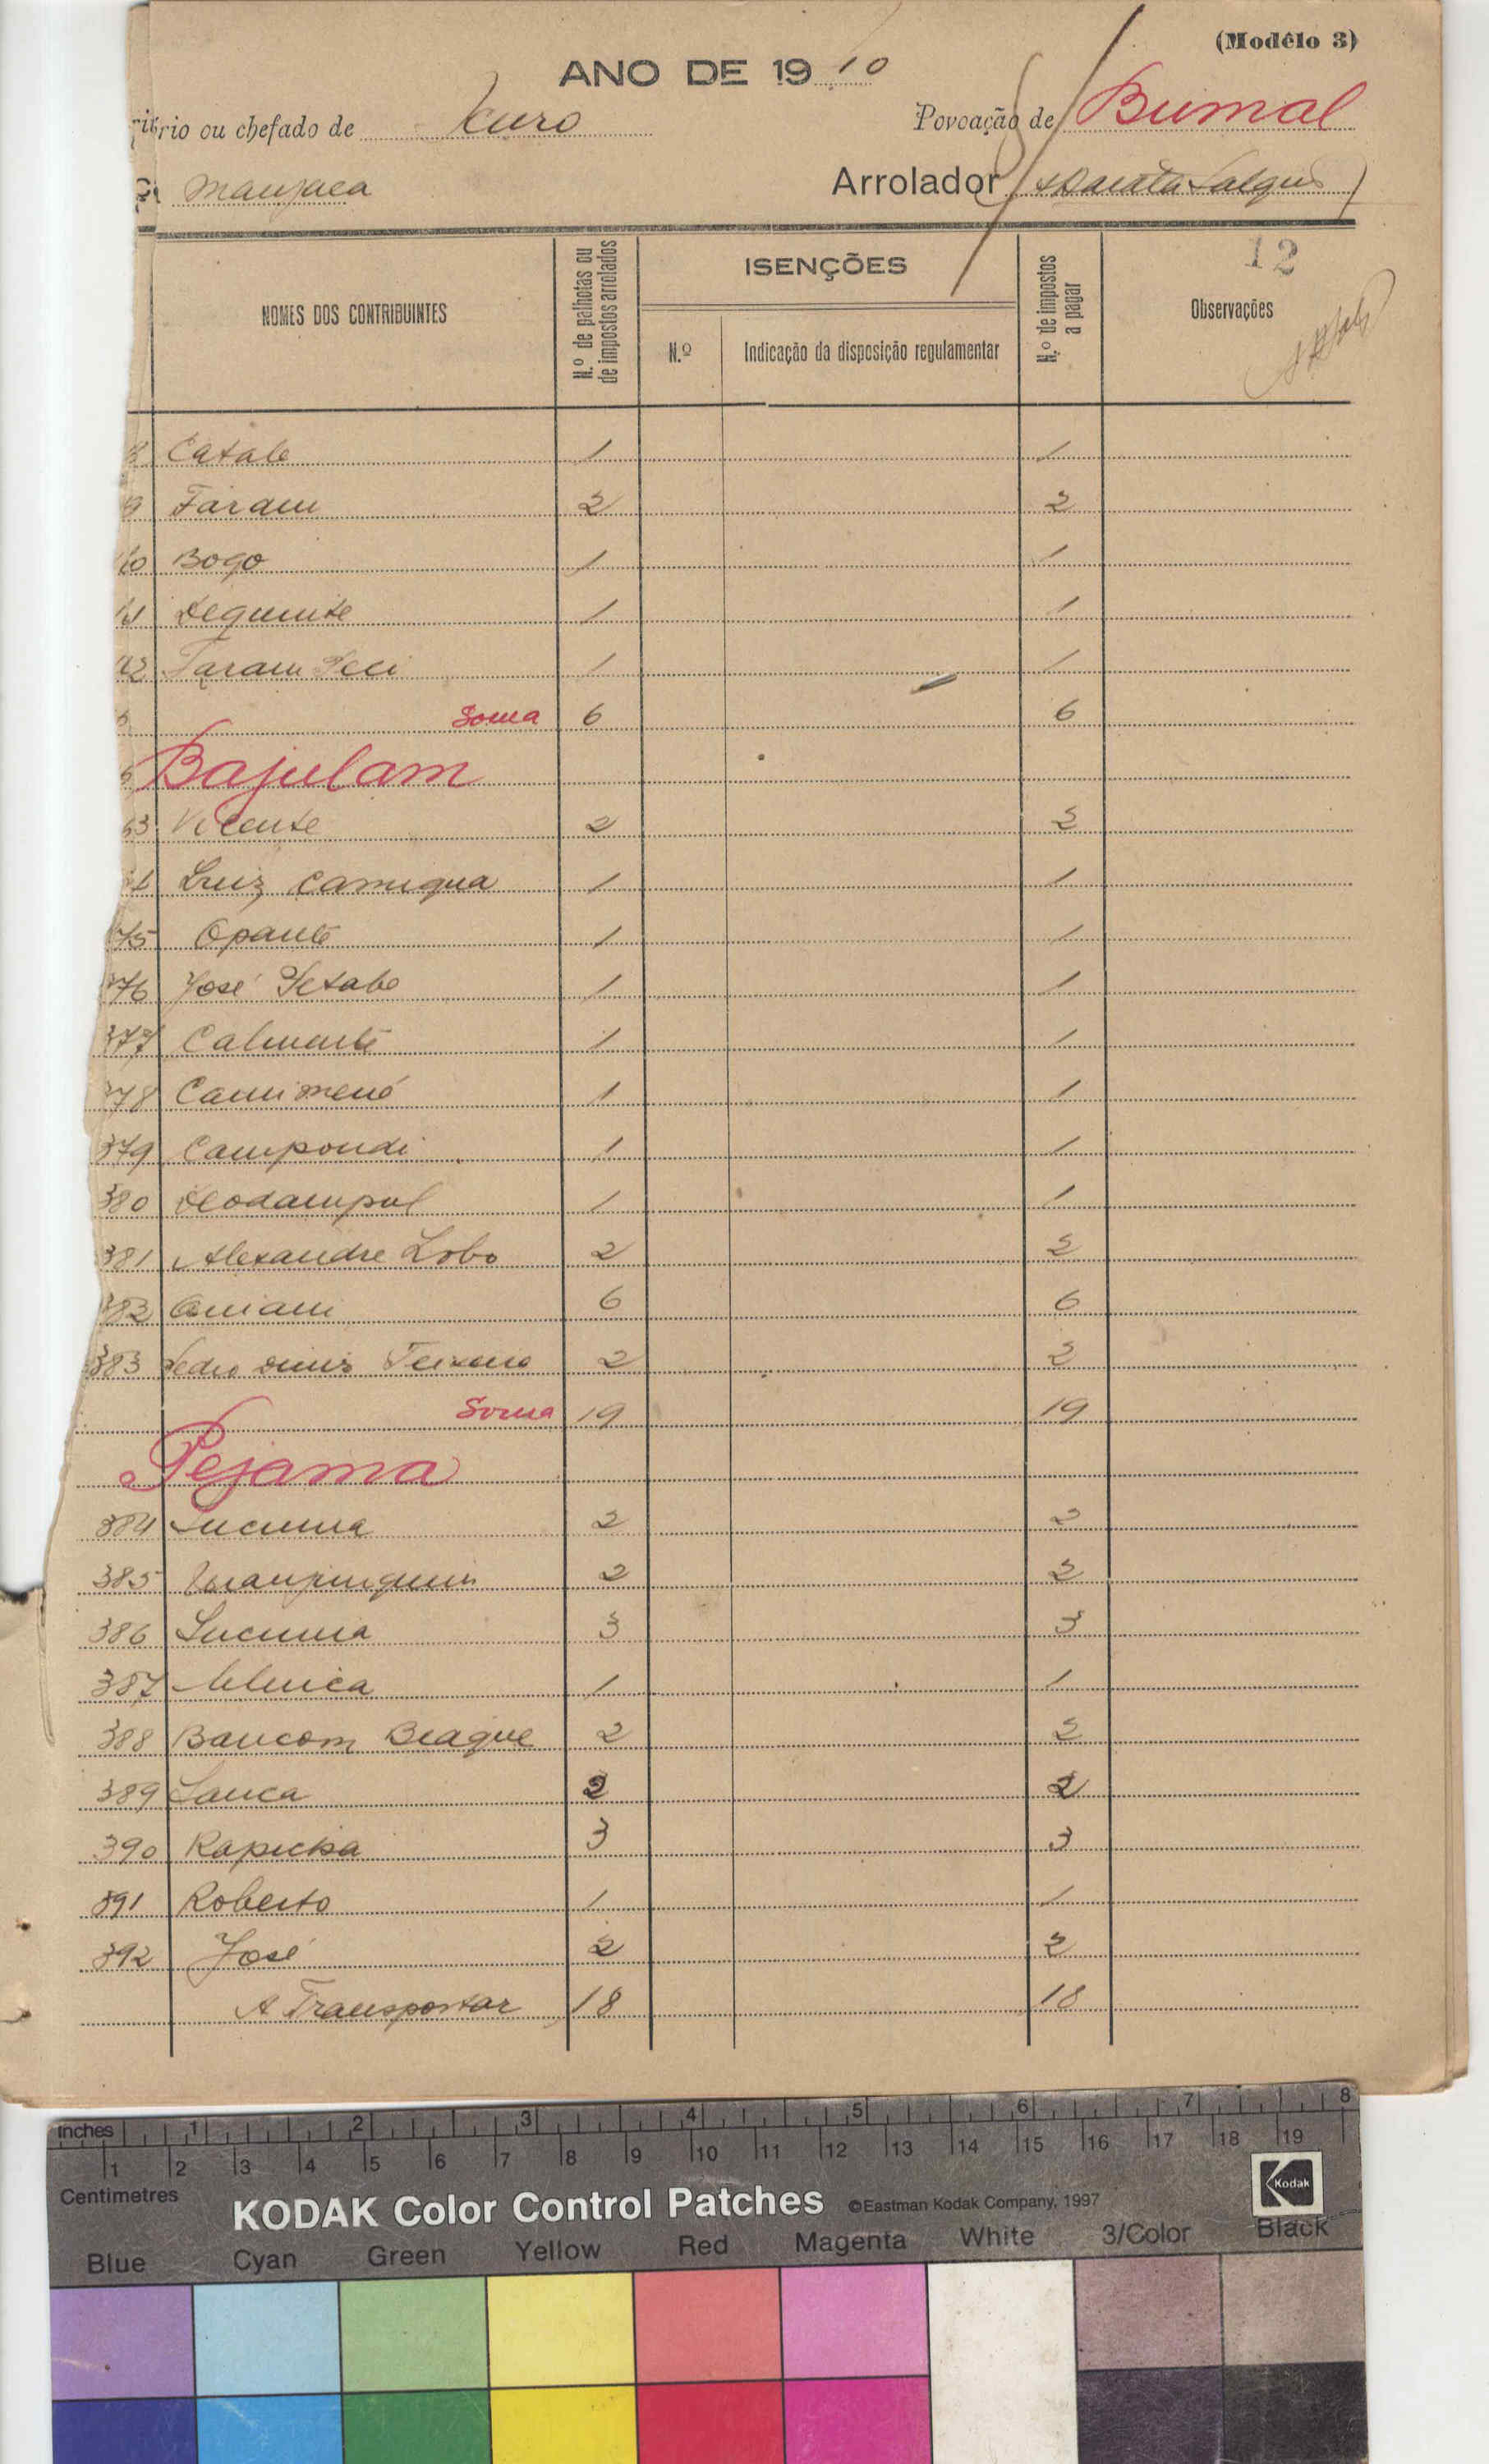 (Modêlo 3)
ANO DE 19 10
rio ou chefado de Curo
Povoação de Bumal
Manjaca
Arrolador
NOMES DOS CONTRIBUINTES
N.º de palhotas ou de impostos arrolados
ISENÇÕES
N.º
Indicação da disposição regulamentar
N.º de impostos a pagar
12
Observações
Catale 1 1
Faram 2 2
Bogo 1 1
1 1
Faram Seci 1 1
Soma 6 6
Bajulam
Vicente 2 2
Luiz Camigua 1 1
75 Opante 1 1
376 José Petabe 1 1
377 Calmante 1 1
378 Canimené 1 1
379 Campondi 1 1
380 1 1
381 Alexandre Lobo 2 2
382 6 6
383 Pedro Diniz Teixera 2 2
Soma 19 19
Pejama
384 2 2
385 2 2
386 3 3
387 1 1
388 Baucom Biague 2 2
389 Sanca 2 2
390 3 3
391 Roberto 1 1
392 José 2 2
A Transportar 18 18
inches 1 2 3 4 5 6 7 8
1 2 3 4 5 6 7 8 9 10 11 12 13 14 15 16 17 18 19
Centimetres
KODAK Color Control Patches ©Eastman Kodak Company, 1997 Kodak
Blue Cyan Green Yellow Red Magenta White 3/Color Black